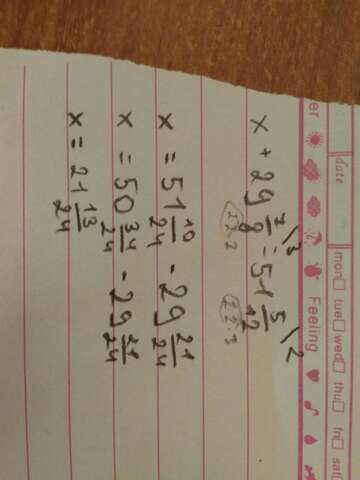 er date mon tue wed thu fri sat
Feeling
x + 29 7/8 \3 = 51 5/12 \2
2·2·2 2·2·3
x = 51 10/24 - 29 21/24
x = 50 34/24 - 29 21/24
x = 21 13/24